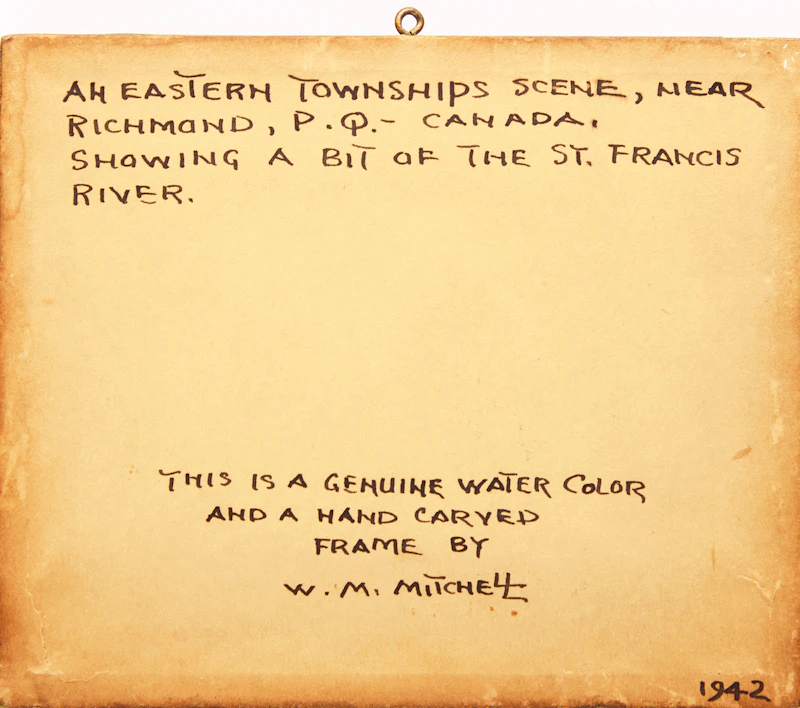 AN EASTERN TOWNSHIPS SCENE, NEAR
RICHMOND, P.Q.- CANADA.
SHOWING A BIT OF THE ST. FRANCIS
RIVER.
THIS IS A GENUINE WATER COLOR
AND A HAND CARVED
FRAME BY
W. M. MITCHELL
1942